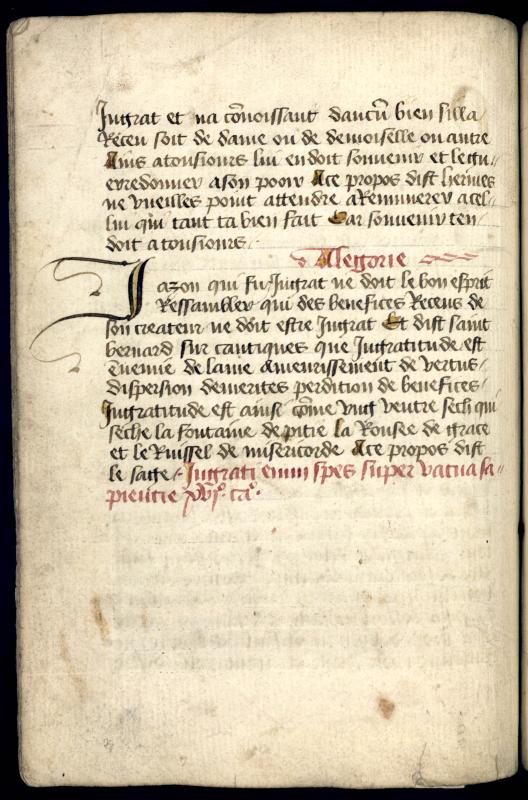 Jngrat et na cõnoissant daucũ bien silla
Receu soit de dame ou de demoiselle ou autre
Amis atousiours luy en doit souvenir et le gu//
erredonner a son pooir Ace propos dist hermes
ne vueilles point attendre a Remunerer a cel//
luy qui tant ta bien fait Car souvenir ten
doit atousiours .
Alegorie
Jazon qui fu Jngrat ne doit le bon esprit
Ressambler qui des benefices Receus de
son createur ne doit estre Jngrat Et dist saint
bernard sur cantiques que Jngratitude est
Ennemie de lame Amenrissement de vertus/
dispersion de merites perdition de benefices/
Jngratitude est ainsi cõme vng ventre sech qui
seche la fontaine de pitie la Rousee de grace
et le Ruissel de misericorde Ace propos dist
le sage / Jngrati enim spes super vacua sa//
piencie xvjº. caº.